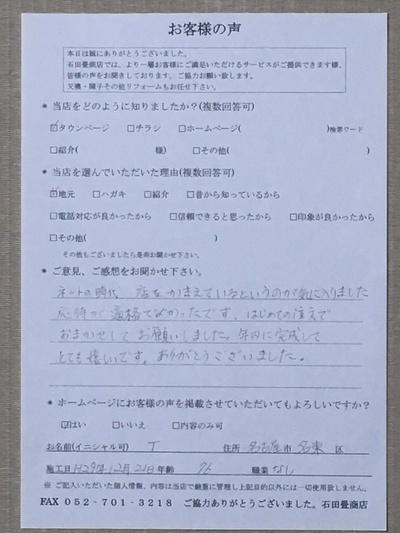 お客様の声
本日は誠にありがとうございました。
石田畳商店では、より一層お客様にご満足いただけるサービスがご提供できます様、
皆様の声をお聞きしております。ご協力お願い致します。
又襖・障子その他リフォームもお任せ下さい。
* 当店をどのように知りましたか?(複数回答可)
☑タウンページ □チラシ □ホームページ( )検索ワード
□紹介( 様) □その他( )
* 当店を選んでいただいた理由(複数回答可)
☑地元 □ハガキ □紹介 □昔から知っているから
□電話対応が良かったから □信頼できると思ったから □印象が良かったから
□その他( )
その他もございましたら是非お聞かせ下さい。
* ご意見、ご感想をお聞かせ下さい。
ネットの時代 店をかまえているというのが気に入りました
応待が でよかったです。はじめての注文で
おまかせしてお願いしました。年内に完成して
とても嬉しいです。ありがとうございました。
* ホームページにお客様の声を掲載させていただいてもよろしいですか?
☑はい □いいえ □内容のみ可
お名前(イニシャル可) T 住所 名古屋市 名東 区
施工日 H29年12月21日 年齢 76 職業 なし
※ ご記入いただいた個人情報、内容は当店で厳重に管理し上記目的以外には一切使用致しません。
FAX 052-701-3218 ご協力ありがとうございました。石田畳商店